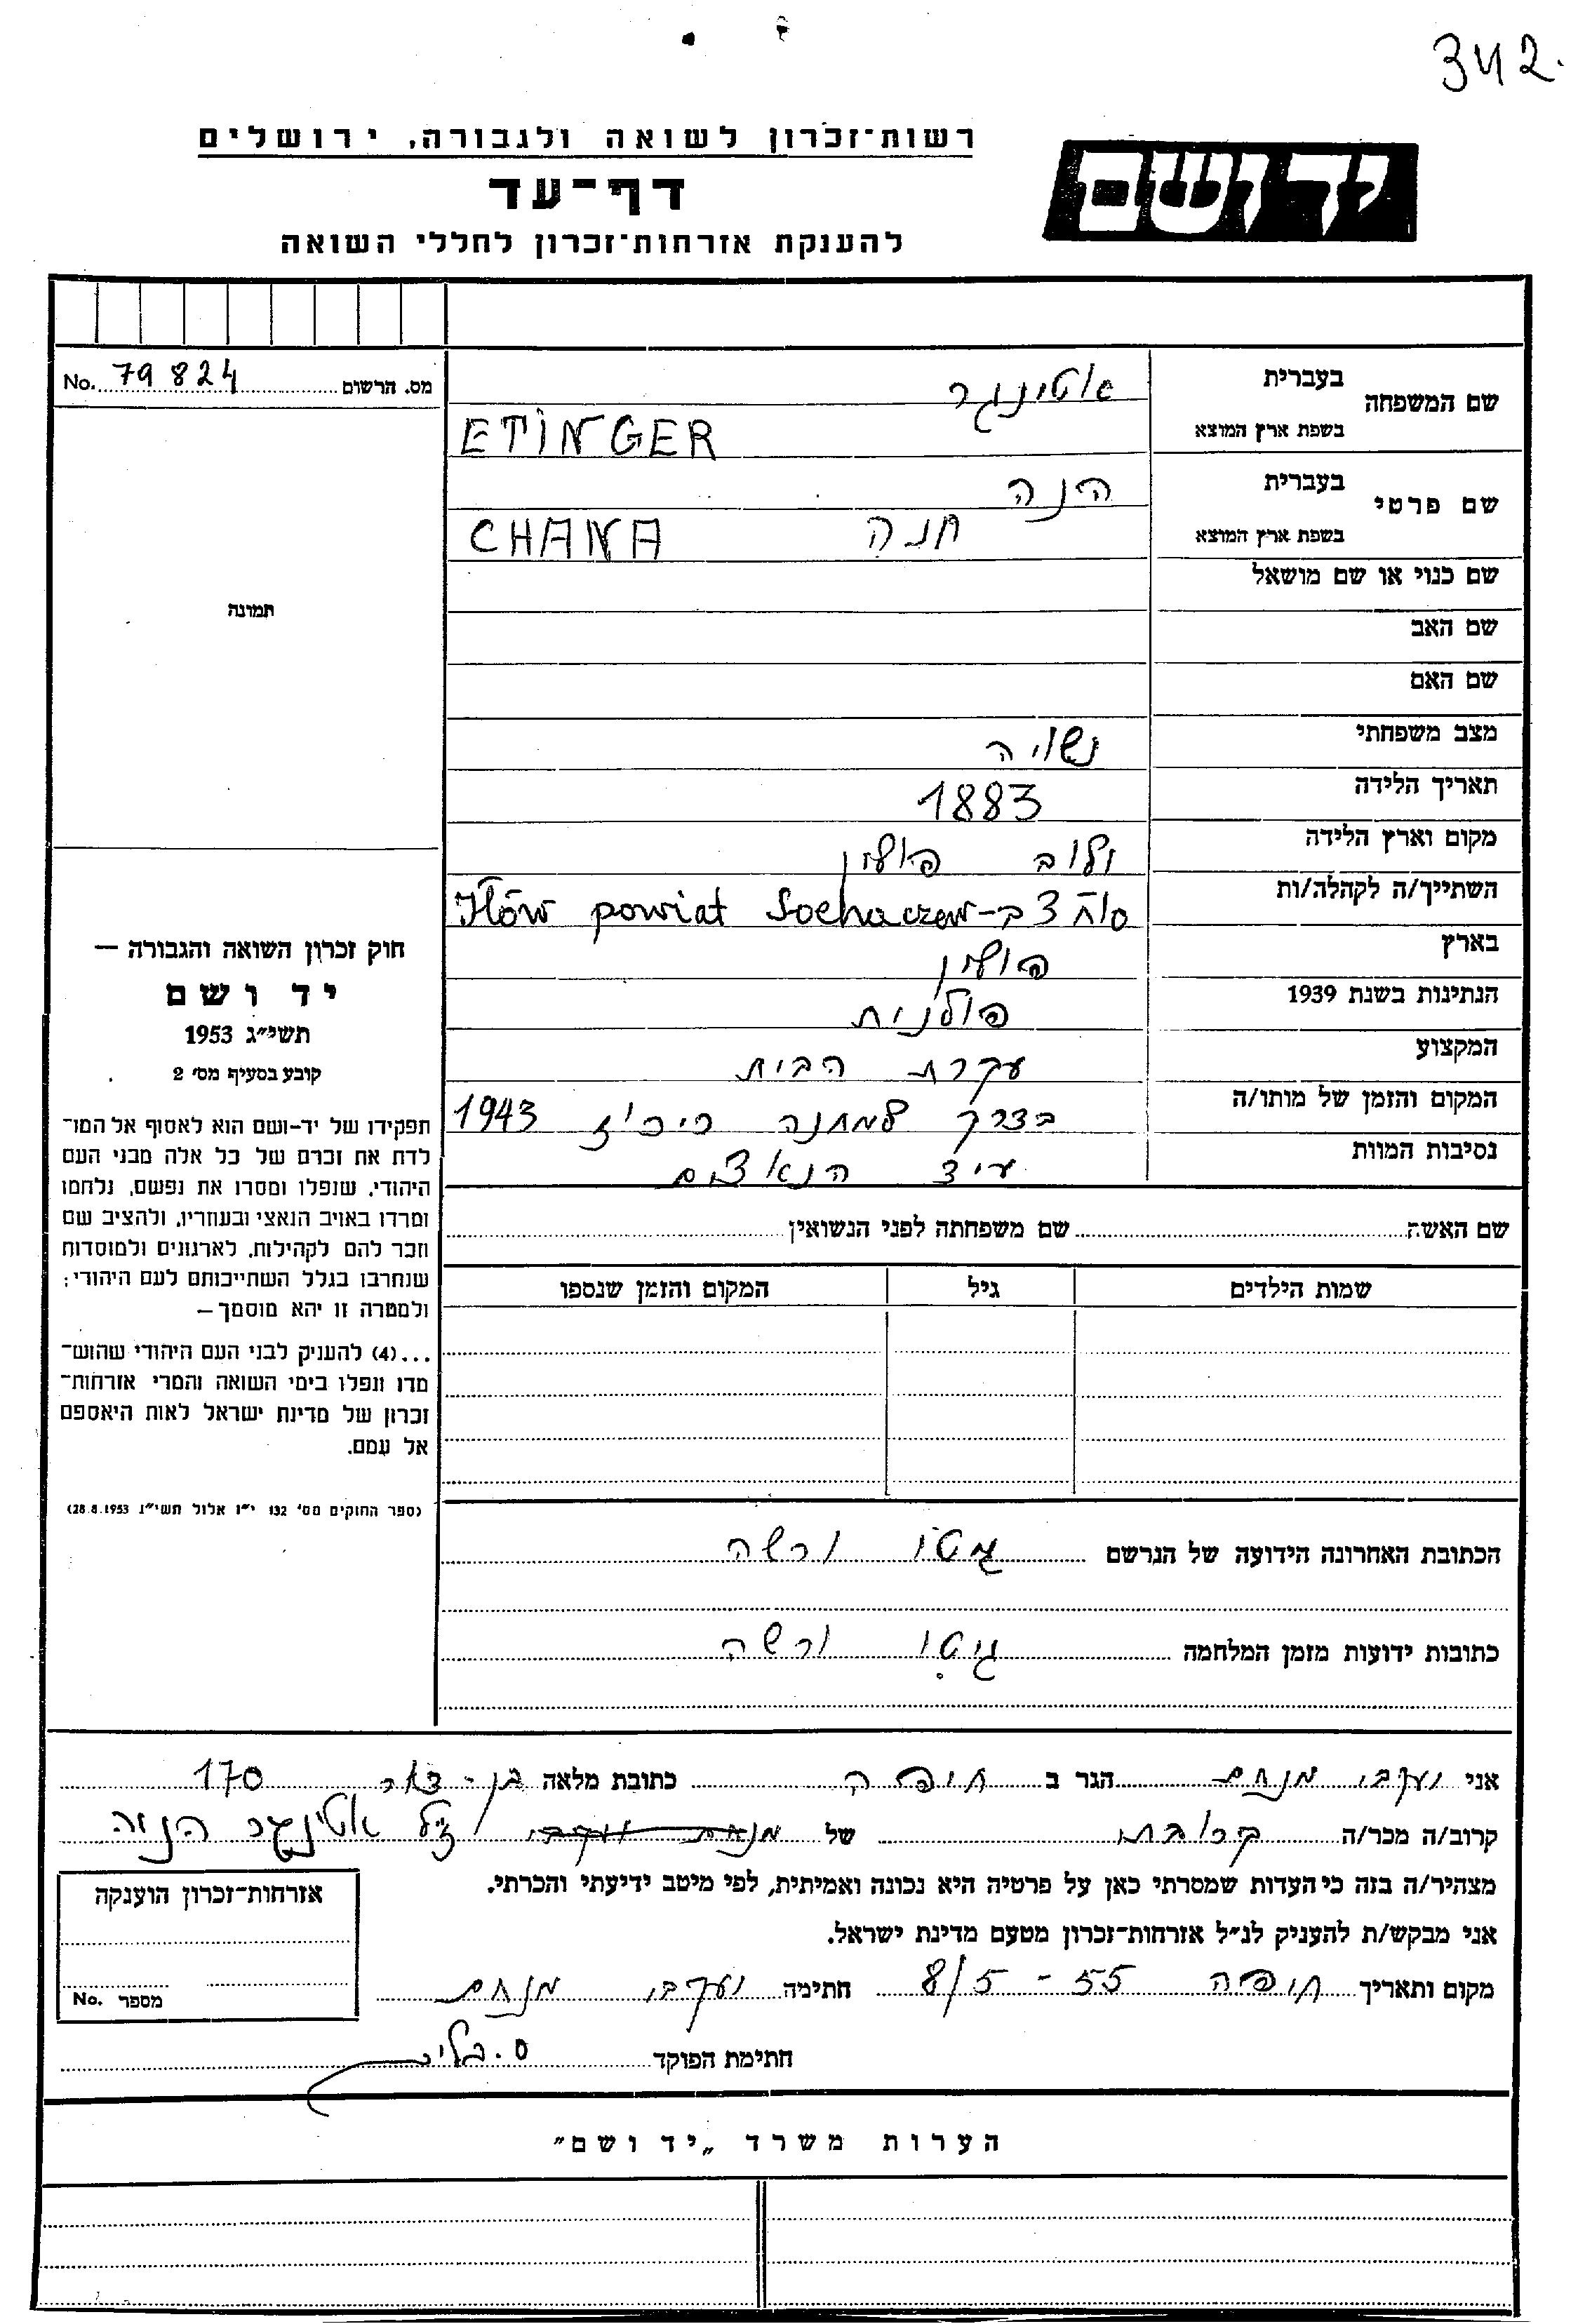 342.
רשות־זכרון לשואה ולגבורה, ירושלים
יד ושם
דף־עד
להענקת אזרחות־זכרון לחללי השואה
מס. הרשום 79824 No.
שם המשפחה
בעברית אטינגר
בשפת ארץ המוצא ETINGER
שם פרטי
בעברית הנה
בשפת ארץ המוצא חנה CHANA
שם כנוי או שם מושאל
שם האב
שם האם
מצב משפחתי נשויה
תאריך הלידה 1883
מקום וארץ הלידה פולין
השתייך/ה לקהלה/ות Iłów powiat Sochaczew
בארץ פולין
הנתינות בשנת 1939 פולנית
המקצוע עקרת הבית
המקום והזמן של מותו/ה בדרך למחנה ריכוז 1943
נסיבות המוות הנאצים
שם האשה שם משפחתה לפני הנשואין
שמות הילדים גיל המקום והזמן שנספו
תמונה
חוק זכרון השואה והגבורה —
יד ושם
תשי״ג 1953
קובע בסעיף מס׳ 2
תפקידו של יד-ושם הוא לאסוף אל המו־
לדת את זכרם של כל אלה מבני העם
היהודי, שנפלו ומסרו את נפשם, נלחמו
ומרדו באויב הנאצי ובעוזריו, ולהציב שם
וזכר להם לקהילות, לארגונים ולמוסדות
שנחרבו בגלל השתייכותם לעם היהודי;
ולמטרה זו יהא מוסמך—
...(4) להעניק לבני העם היהודי שהוש־
מדו ונפלו בימי השואה והמרי אזרחות־
זכרון של מדינת ישראל לאות היאספם
אל עמם.
(ספר החוקים מס׳ 132 י״ז אלול תשי״ג 28.8.1953)
הכתובת האחרונה הידועה של הנרשם גטו ורשה
כתובות ידועות מזמן המלחמה גיטו ורשה
אני יעקבי מנחם הגר ב חיפה כתובת מלאה בן-דור 170
קרוב/ה מכר/ה קרובת של ז״ל אטינגר הנה
מצהיר/ה בזה כי העדות שמסרתי כאן על פרטיה היא נכונה ואמיתית, לפי מיטב ידיעתי והכרתי.
אני מבקש/ת להעניק לנ״ל אזרחות־זכרון מטעם מדינת ישראל.
מקום ותאריך חיפה 8/5-55 חתימה יעקבי מנחם
חתימת הפוקד
אזרחות־זכרון הוענקה
מספר No.
הערות משרד „יד ושם״